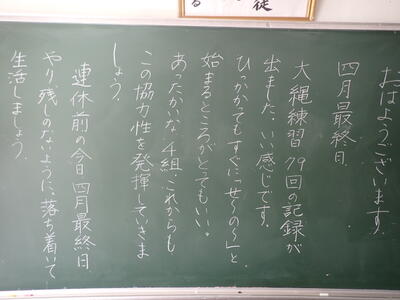 おはようございます。
四月最終日
大縄練習79回の記録が
出ました。いい感じです。
ひっかかってもすぐに「せ〜の〜」と
始まるところがとってもいい。
あったかいな、4組。これからも
この協力性を発揮していきま
しょう。
連休前の今日、四月最終日
やり残しのないように、落ち着いて
生活しましょう。
徒
る